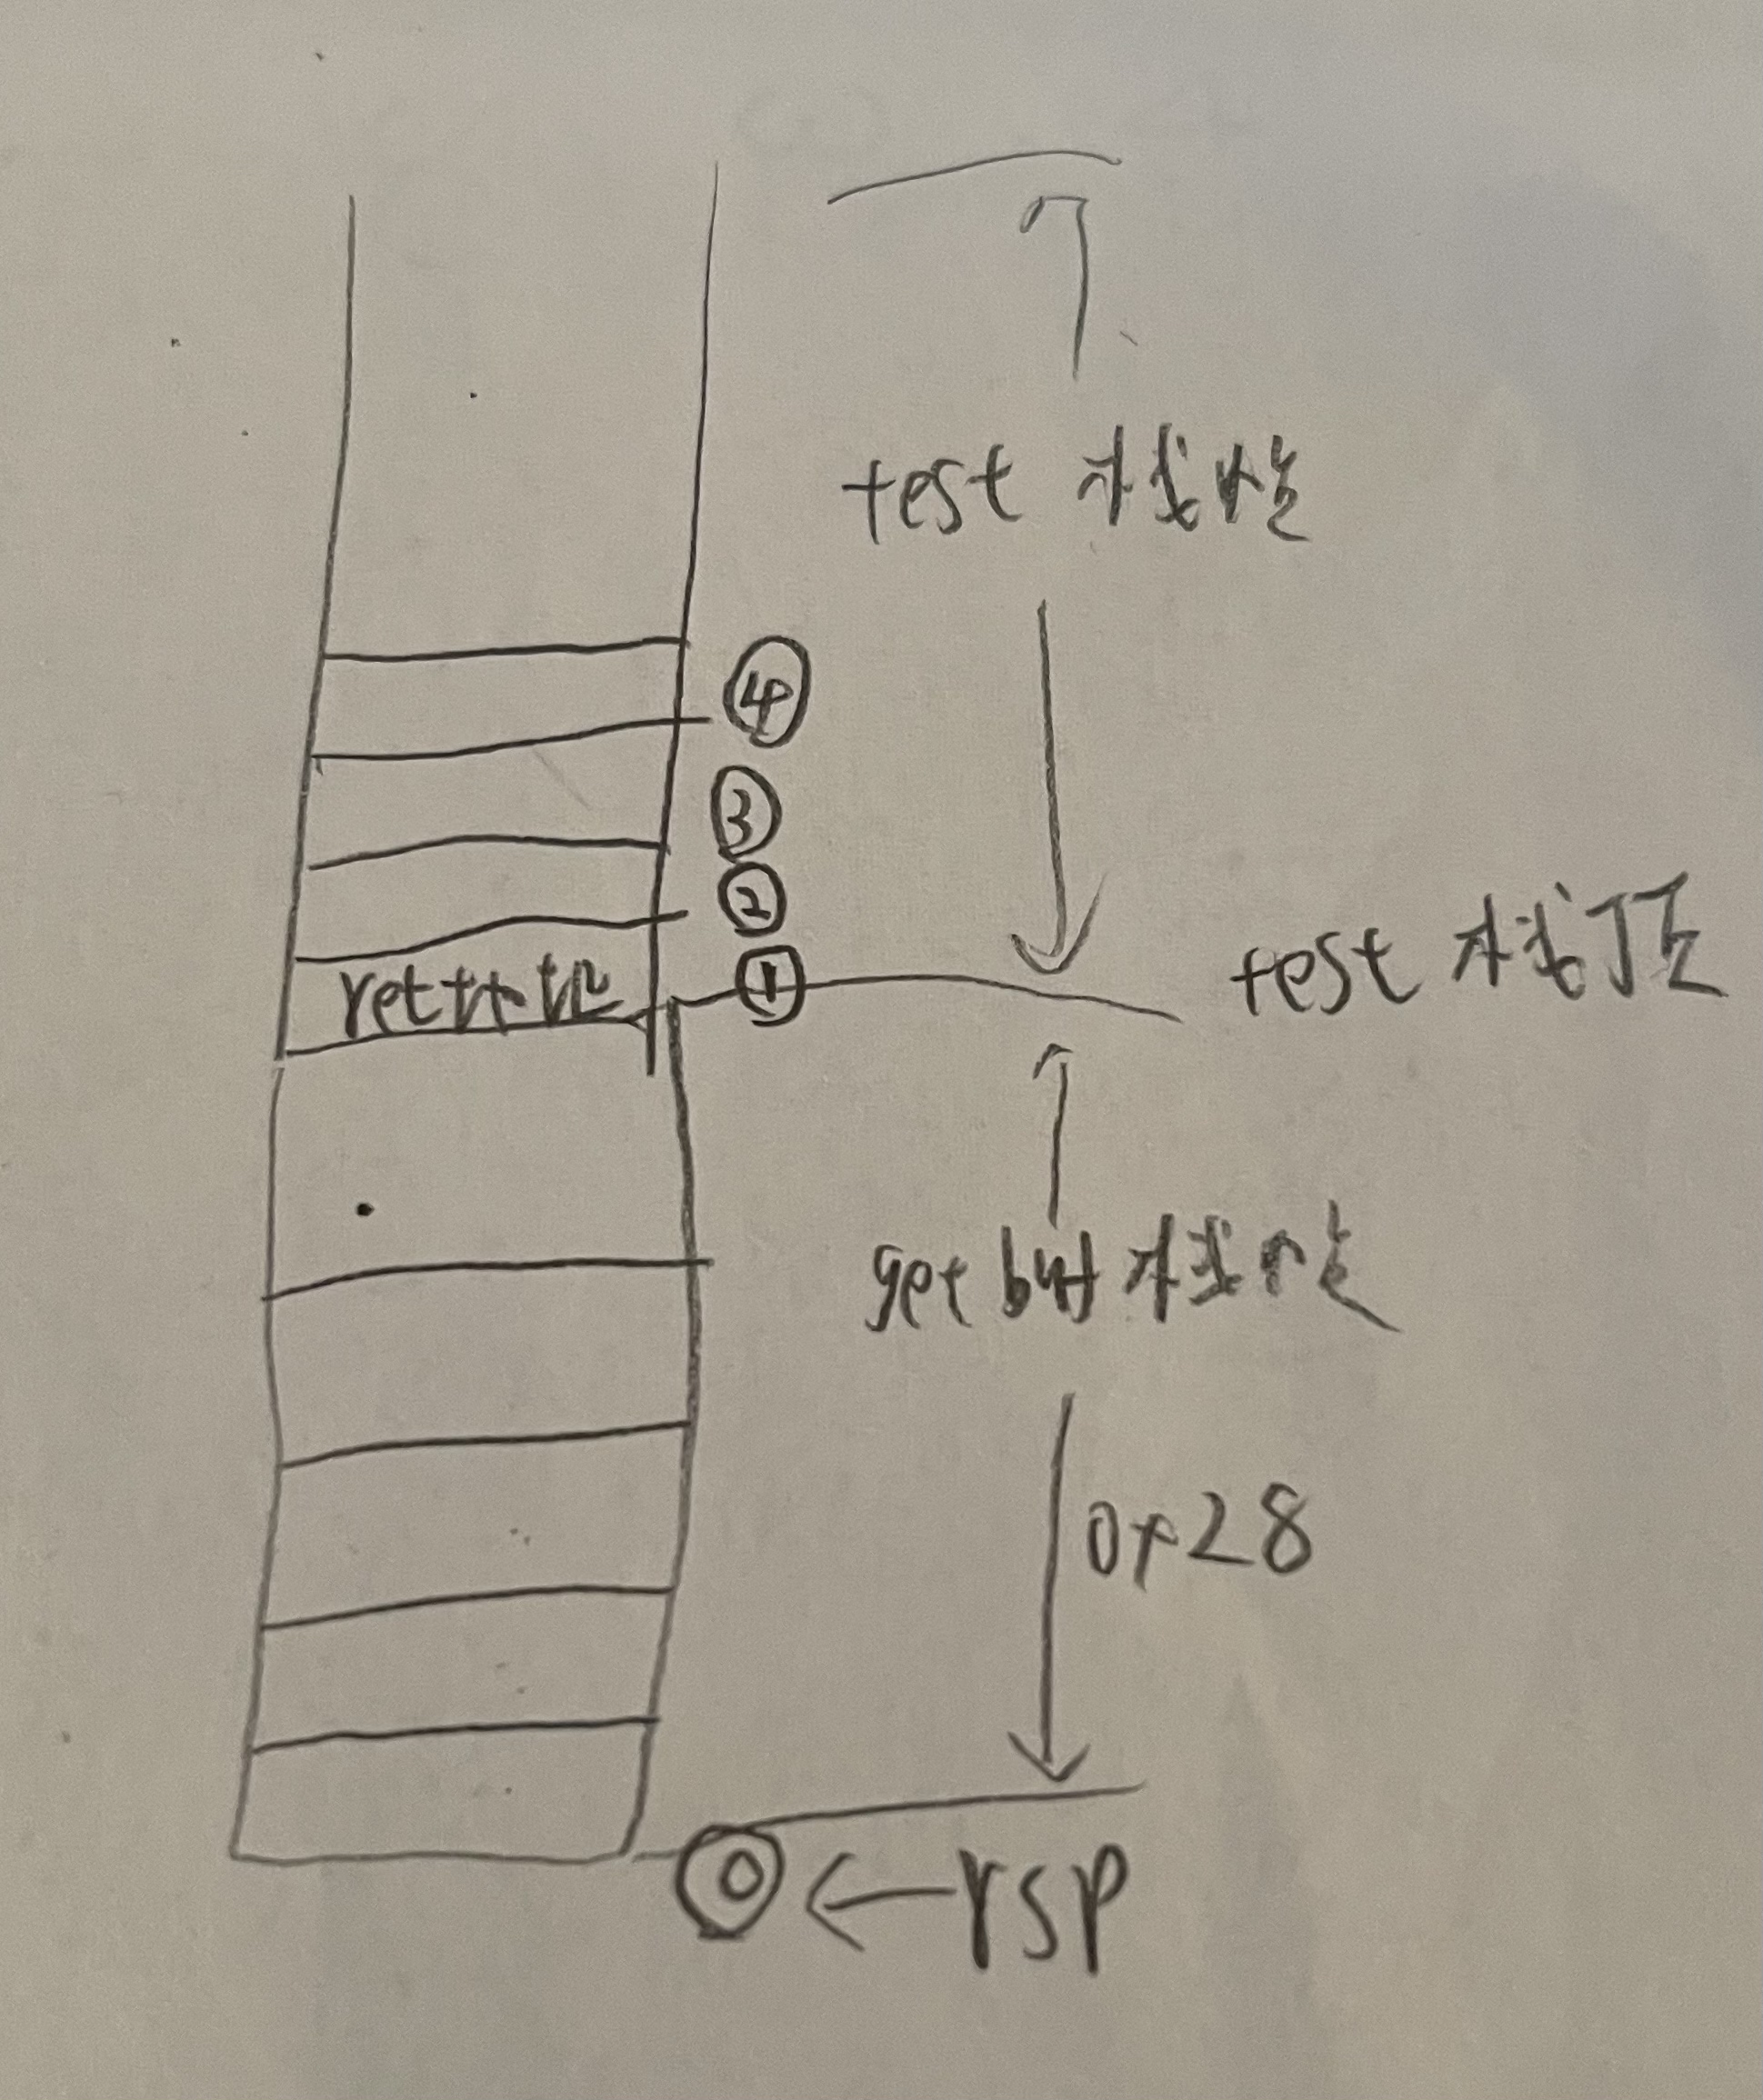 test 栈帧
④
③
②
ret 地址
①
test 栈顶
getbuf 栈帧
0x28
⓪ ← rsp